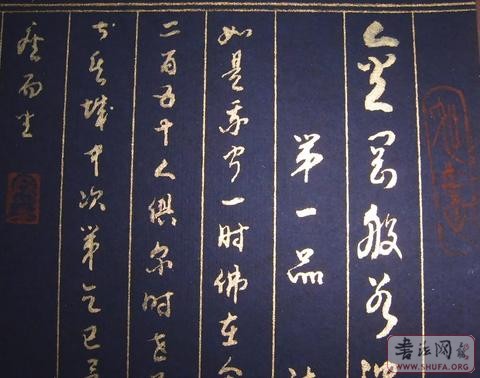 金剛般若
第一品
如是我闻一时佛在
二百五十人俱尔时世
于其城中次第乞已
座而坐
WWW.SHUFA.ORG